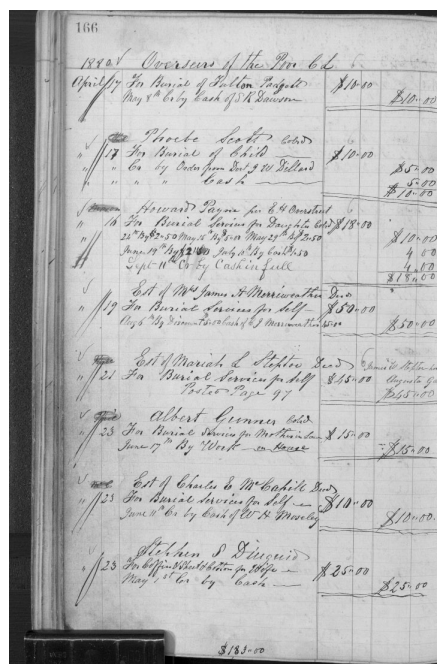 166
1880 Overseers of the Poor Cd
April 17 For Burial of Fulton Padgett $10.00
May 8th Cr by Cash of S R Dawson $10.00
Phoebe Scott Cold
" 17 For Burial of Child $10.00
" " Cr by Order from Doct J W Dillard $5.00
" " " " Cash 5.00
$10.00
Howard Payne per E H Overstreet
" 16 For Burial Services for Daughter Cold $18.00
$10.00
June 19th July 10th By Cash 4.50 4.00
Sept 11th Cr by Cash in full 4.00
$18.00
Est of Mrs James A Merriweather Decd
" 19 For Burial Services for Self $50.00
Cash of E J Merriweather $50.00
Est of Mariah L Steptoe Decd
" 21 For Burial Services for Self $45.00
Posted Page 97 $45.00
Albert Gunner Cold
" 23 For Burial Services for Mother in law $15.00
June 17th By Work on House $15.00
Est of Charles E McCahill Decd
" 23 For Burial Services for Self $10.00
June 11th Cr by Cash of W H Moseley $10.00
Stephen S Diuguid
" 23 For Coffin for Wife $25.00
May 1st Cr by Cash $25.00
$183.00